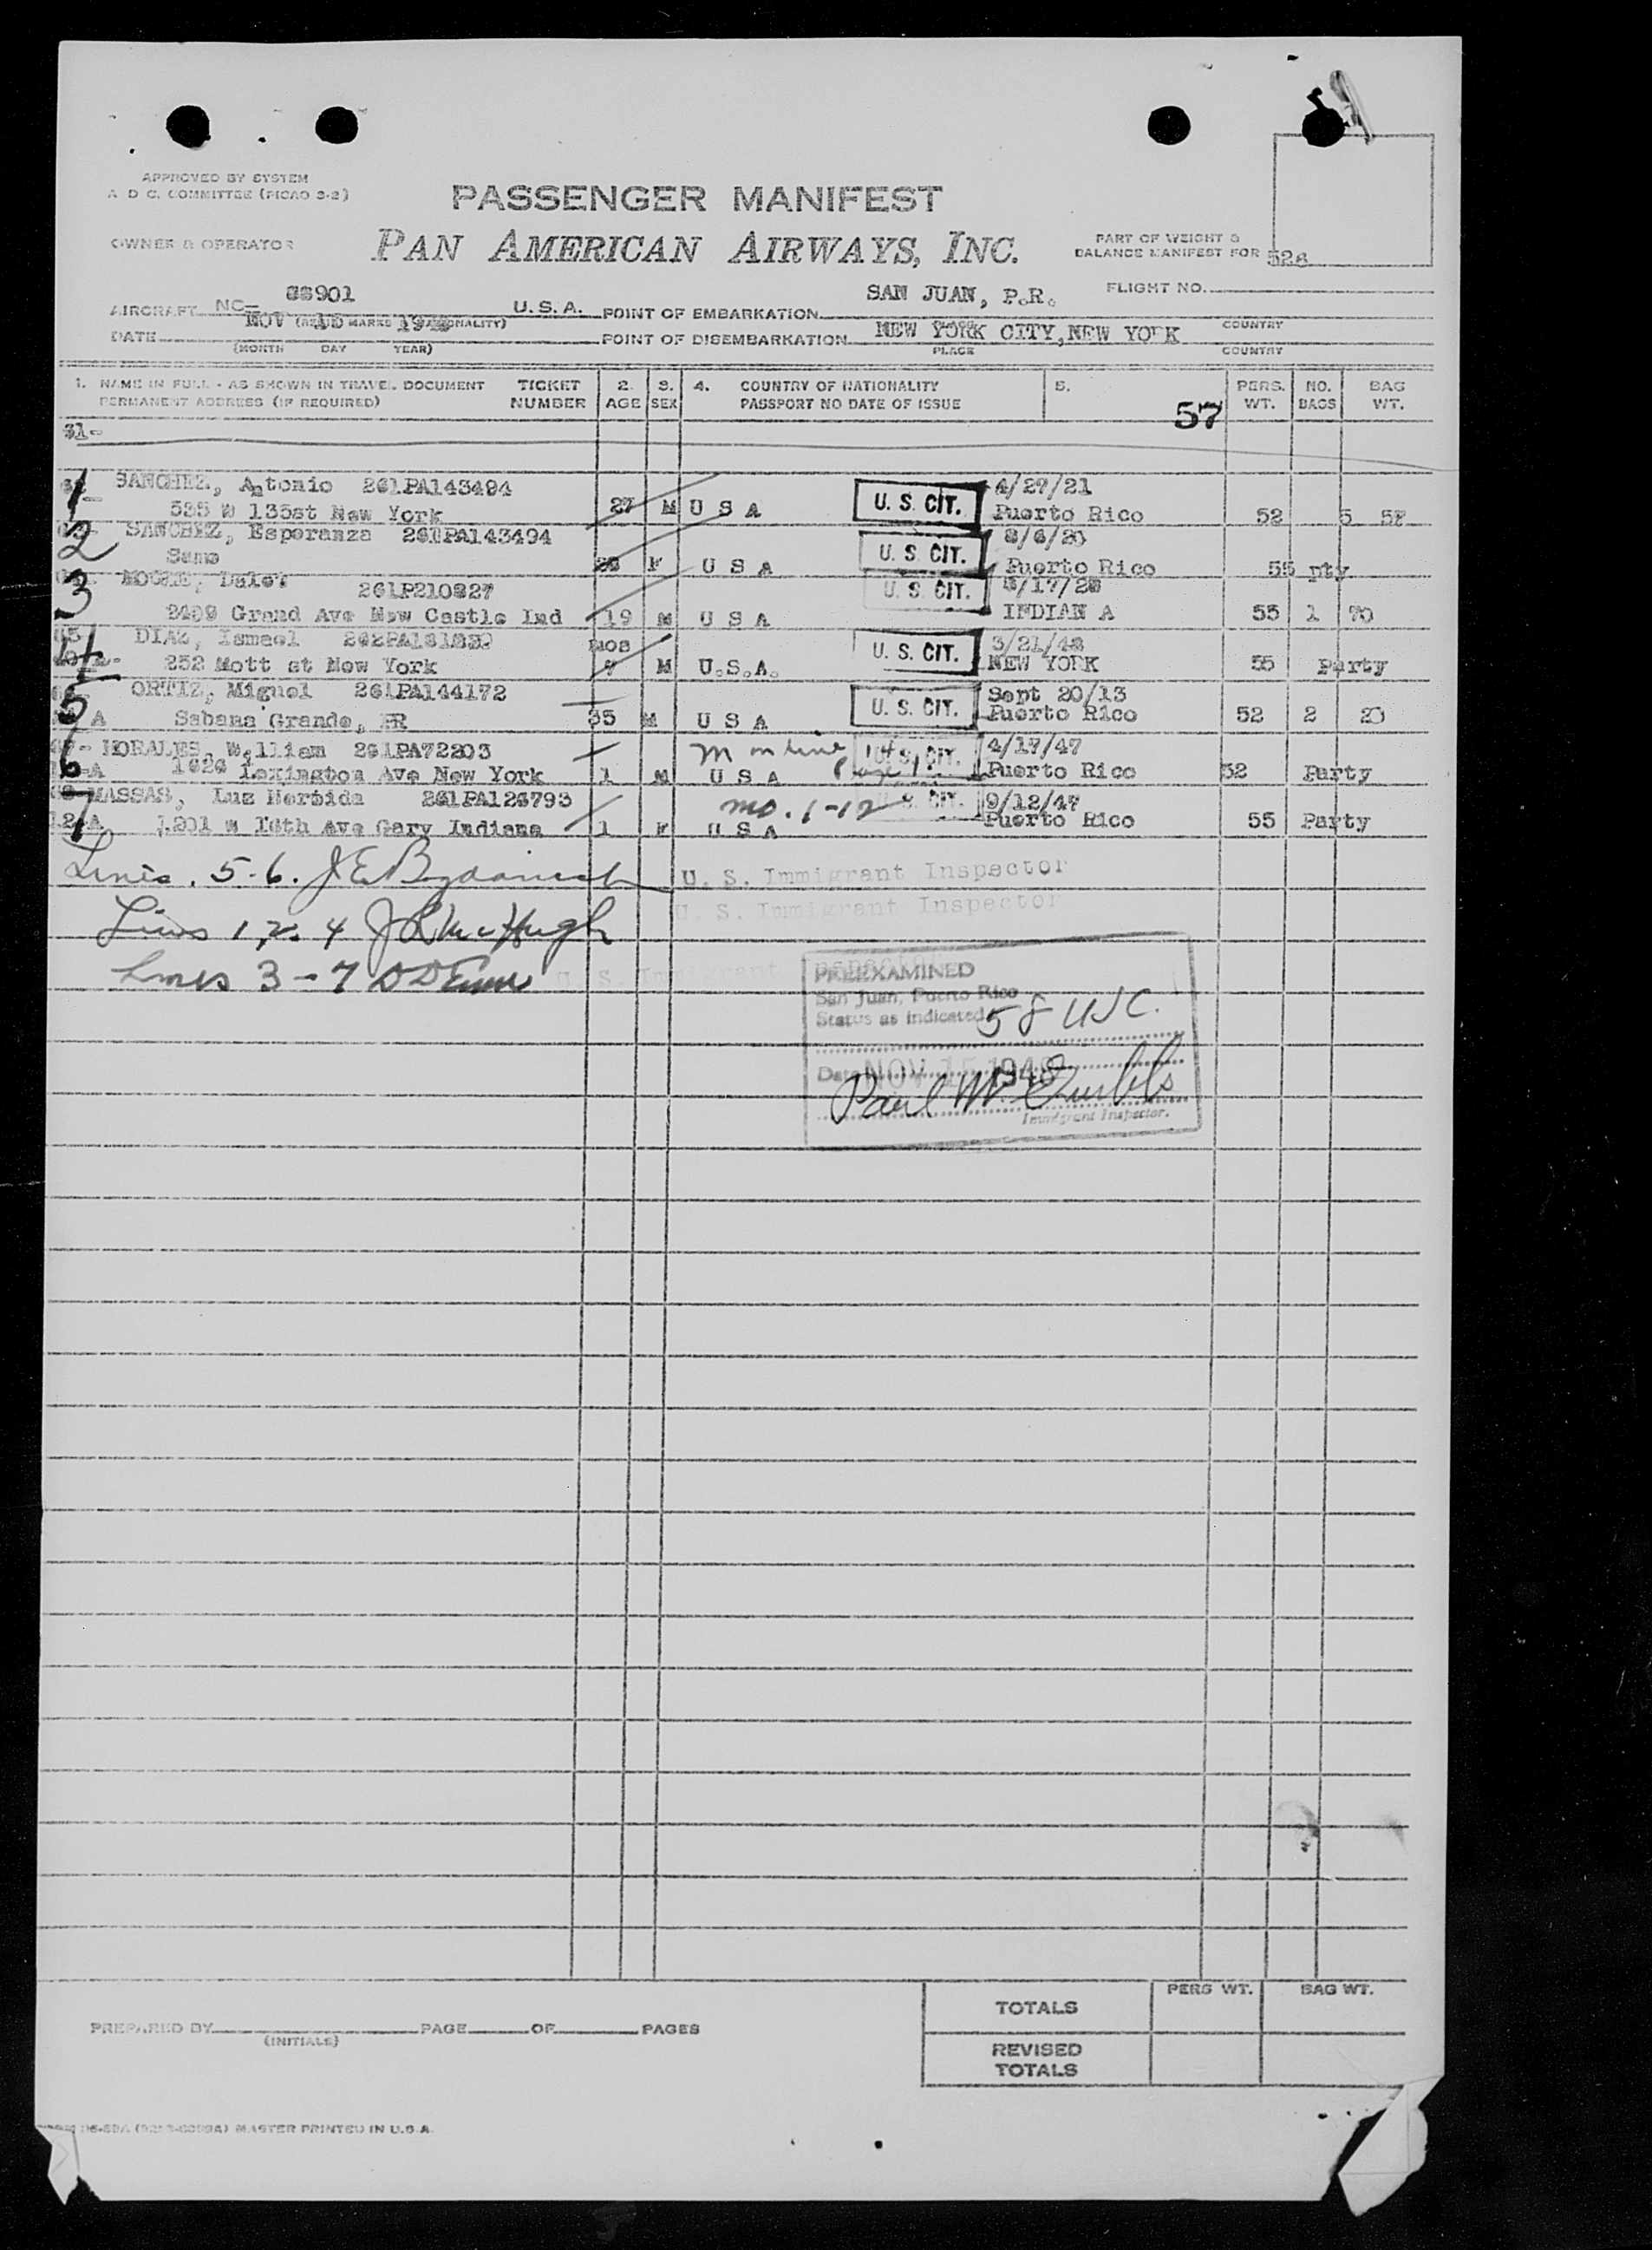 APPROVED BY SYSTEM
A D C. COMMITTEE (PICAO 2-2)
PASSENGER MANIFEST
OWNER & OPERATOR
PAN AMERICAN AIRWAYS, INC.
PART OF WEIGHT &
BALANCE MANIFEST FOR 526
FLIGHT NO.
AIRCRAFT NC- 88901 U.S.A. POINT OF EMBARKATION SAN JUAN, P.R.
DATE NOV 15 POINT OF DISEMBARKATION NEW YORK CITY, NEW YORK COUNTRY
(MONTH DAY YEAR) PLACE COUNTRY
1. NAME IN FULL - AS SHOWN IN TRAVEL DOCUMENT TICKET 2. 3. 4. COUNTRY OF NATIONALITY 5. PERS. NO. BAG
PERMANENT ADDRESS (IF REQUIRED) NUMBER AGE SEX PASSPORT NO DATE OF ISSUE 57 WT. BAGS WT.
31-
1 SANCHEZ, Antonio 261PA143494 4/27/21
535 W 135st New York 27 M U S A U. S. CIT. Puerto Rico 52 5
2 SANCHEZ, Esperanza 261PA143494 /6/20
Same F U S A U. S. CIT. Puerto Rico 55 pty
3 Dale 261P210827 U. S. CIT. /17/
Grand Ave New Castle Ind 19 M U S A INDIAN A 55 1 70
4 DIAZ, Ismael mos U. S. CIT. 3/21/48
252 Mott st New York M U.S.A. NEW YORK 55 Party
5 ORTIZ, Miguel 261PA144172 Sept 20/13
A Sabana Grande, PR 35 M U S A U. S. CIT. Puerto Rico 52 2 20
6 MORALES, William 261PA72203 M on line 14 page 1 U. S. CIT. 4/17/47
A 1626 Lexington Ave New York 1 M U S A Puerto Rico 52 Party
7 MASSAS, Luz 261PA126793 mo. 1-12 U. S. CIT. 9/12/47
A 1201 W 16th Ave Gary Indiana 1 F U S A Puerto Rico 55 Party
Lines. 5-6. J E U. S. Immigrant Inspector
U. S. Immigrant Inspector
Lines 1, 2, 4 J L McHugh
Lines 3-7
PREEXAMINED
San Juan, Puerto Rico
Status as indicated 58 USC.
Date NOV 15 1948
Paul
Immigrant Inspector.
PERS WT. BAG WT.
TOTALS
PREPARED BY PAGE OF PAGES
(INITIALS)
REVISED
TOTALS
MASTER PRINTED IN U.S.A.